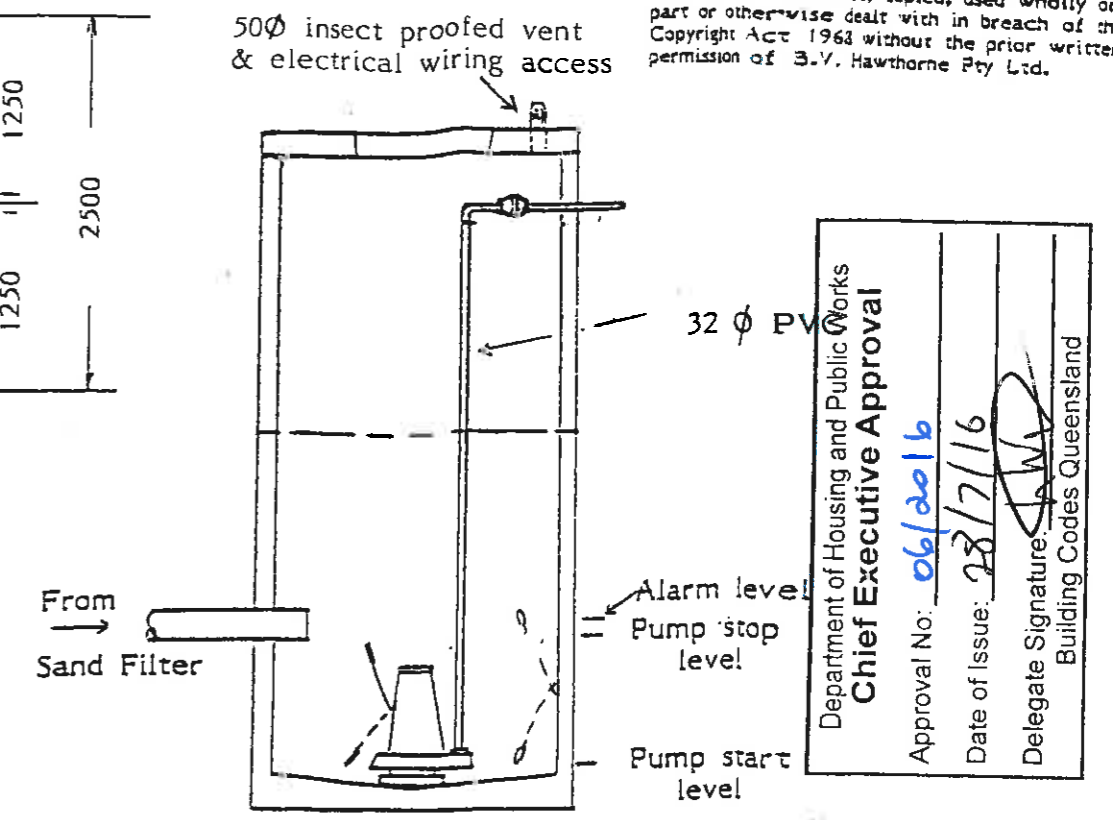 50Ø insect proofed vent
& electrical wiring access
part or otherwise dealt with in breach of
Copyright Act 1968 without the prior written
permission of B.V. Hawthorne Pty Ltd.
1250
2500
1250
32 Ø PVC
From
Sand Filter
Alarm level
Pump stop
level
Pump start
level
Department of Housing and Public Works
Chief Executive Approval
Approval No: 06/2016
Date of Issue: 28/7/16
Delegate Signature:
Building Codes Queensland